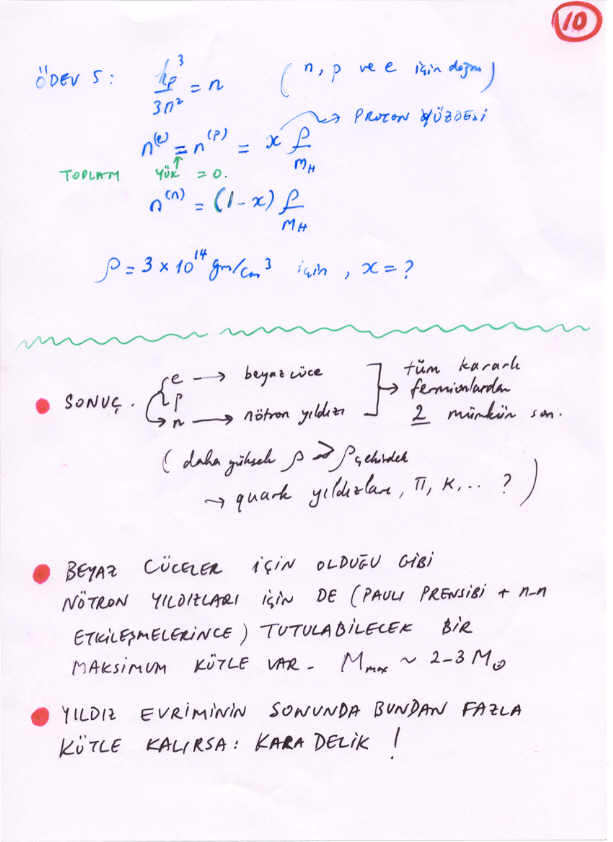 10
ÖDEV 5: kp³/3π² = n (n, p ve e için doğru)
n⁽ᵉ⁾ = n⁽ᵖ⁾ = x ρ/m_H → PROTON YÜZDESİ
TOPLAM YÜK = 0.
n⁽ⁿ⁾ = (1-x) ρ/m_H
ρ = 3 × 10¹⁴ gm/cm³ için, x = ?
SONUÇ.
e → beyaz cüce
p
n → nötron yıldızı
→ tüm kararlı
fermionlardan
2 mümkün son.
( daha yüksek ρ > ρ çekirdek
→ quark yıldızları, π, K, .. ? )
BEYAZ CÜCELER İÇİN OLDUĞU GİBİ
NÖTRON YILDIZLARI İÇİN DE (PAULI PRENSİBİ + n-n
ETKİLEŞMELERİNCE) TUTULABİLECEK BİR
MAKSİMUM KÜTLE VAR - Mmax ~ 2-3 M☉
YILDIZ EVRİMİNİN SONUNDA BUNDAN FAZLA
KÜTLE KALIRSA: KARA DELİK !